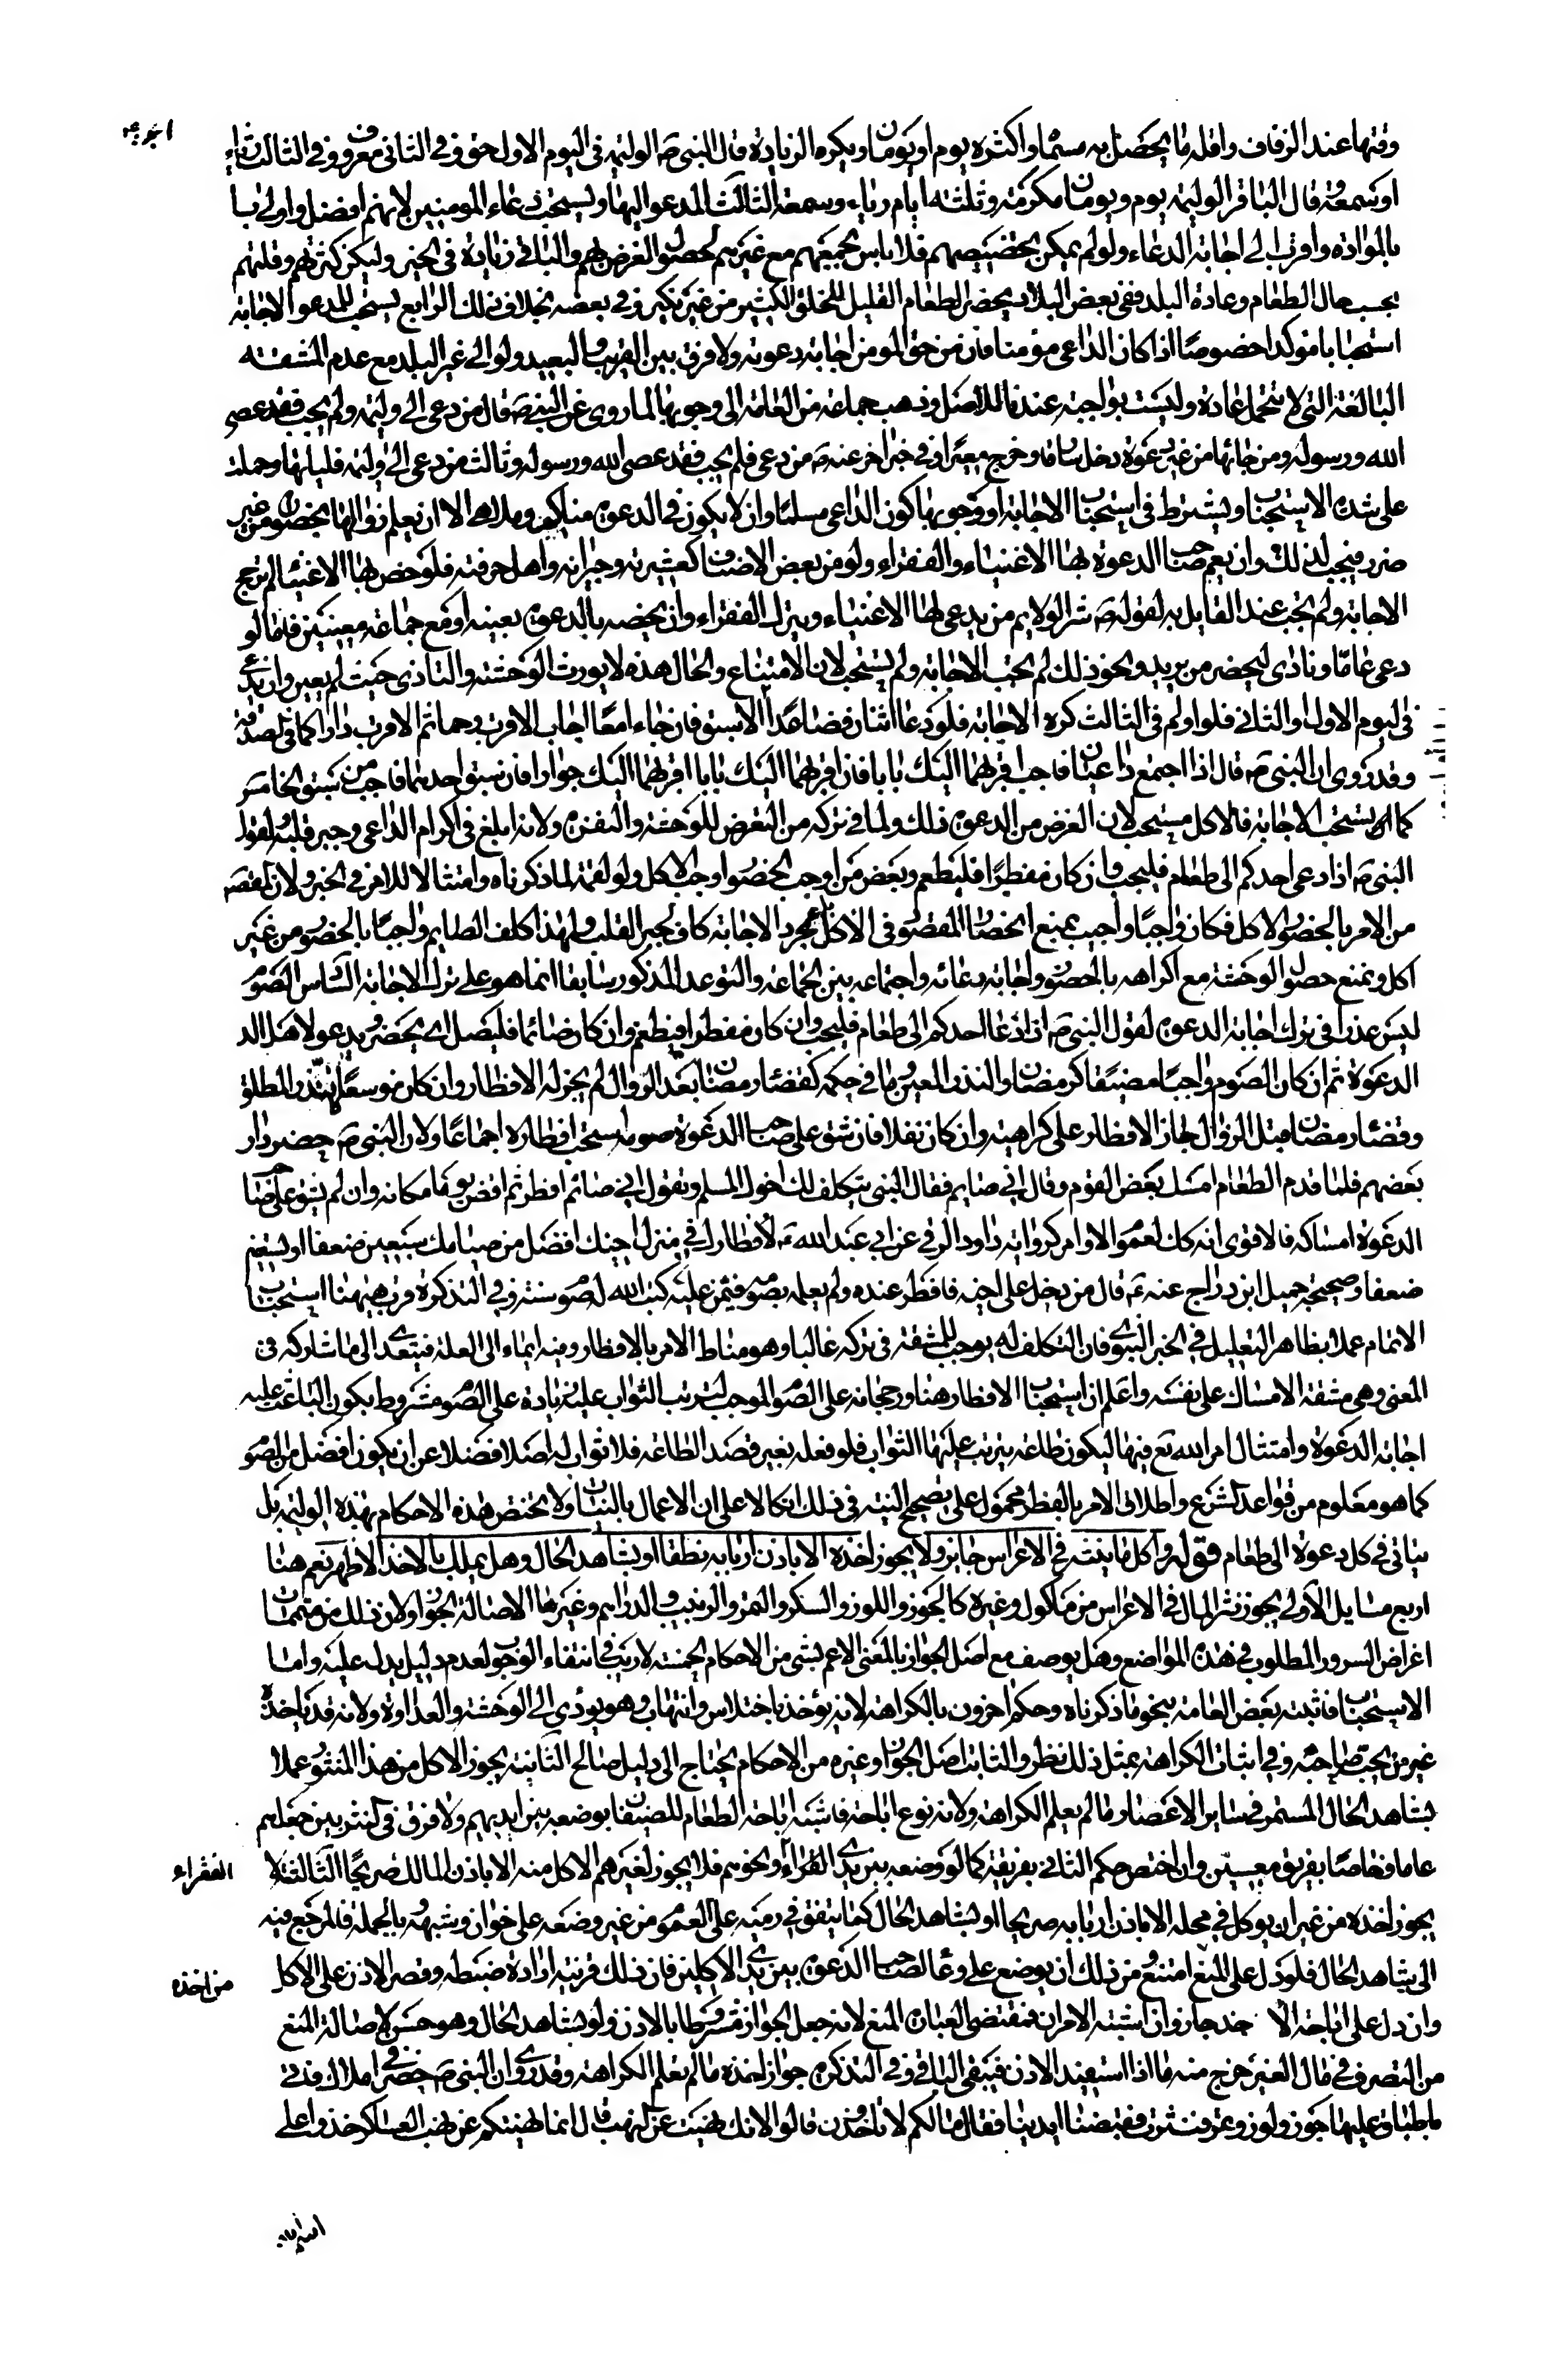 وقتها عند الزفاف واقله ما يحصل به مسماها واكثره يوم او يومان ويكره الزيادة قال النبي ص الوليمة في اليوم الاول حق وفي الثاني معروف وفي الثالث رياء
او سمعة وقال الباقر الوليمة يوم ويومان مكرمة وثلثة ايام رياء وسمعة الثالث المدعو اليها ويستحب دعاء المومنين لانهم افضل واولى با
بالموادة واقرب الى اجابة الدعاء ولو لم يمكن تخصيصهم فلا باس بجمعهم مع غيرهم لحصول الغرض بهم والباقي زيادة في الخير وليكن كثرتهم وقلتهم
بحسب حال الطعام وعادة البلد ففي بعض البلاد يحضر الطعام القليل للخلق الكثير من غير نكير وفي بعضه بخلاف ذلك الرابع يستحب للمدعو الاجابة
استحبابا مؤكدا خصوصا اذا كان الداعي مؤمنا فان من حق المومن اجابة دعوته ولا فرق بين القريب والبعيد ولو الى غير البلد مع عدم المشقة
البالغة التي لا تتحمل عادة وليست بواجبة عندنا للاصل وذهب جماعة من العامة الى وجوبها لما روي عن النبي ص قال من دعي الى وليمة ولم يجب فقد عصى
الله ورسوله ومن جائها من غير دعوة دخل سارقا وخرج معيرا وفي خبر اخر عنه ص من دعي فلم يجب فقد عصى الله ورسوله وثالث من دعي الى وليمة فلياتها وحملت
على شدة الاستحباب ويشترط في استحباب الاجابة او وجوبها كون الداعي مسلما وان لا يكون في الدعوة مناكير وملاهي الا ان يعلم زوالها بحضوره من غير
ضرر فيجب لذلك وان يعم صاحب الدعوة بها الاغنياء والفقراء ولو من بعض الاصناف كعشيرته وجيرانه واهل حرفته فلو خص بها الاغنياء لم يرجح
الاجابة ولم تجب عند القايل به لقوله ص شر الولايم من يدعى لها الاغنياء ويترك الفقراء وان يخصه بالدعوة بعينه او مع جماعة معينين فاما لو
دعى عاما ونادى ليحضر من يريد ونحو ذلك لم تجب الاجابة ولم يستحب لان الامتناع والحال هذه لا يورث الوحشة والتاذي حيث لم يعين وان يدعى
في اليوم الاول او الثاني فلو اولم في الثالث كره الاجابة فلو دعا اثنان فصاعدا اجاب الاسبق فان جاءا معا اجاب الاقرب رحما ثم الاقرب دارا كما في الصدقة
وقد روي ان النبي ص قال اذا اجتمع داعيان فاجب اقربهما اليك بابا فان اقربهما اليك بابا اقربهما اليك جوارا فان سبق احدهما فاجب من سبق الخامس
كما يستحب الاجابة فالاكل مستحب لان الغرض من الدعوة ذلك ولما في تركه من التعرض للوحشة والنفرة ولانه ابلغ في اكرام الداعي وجبر قلبه لقول
النبي ص اذا دعي احدكم الى طعام فليجب وان كان مفطرا فليطعم وبعض من اوجب الحضور اوجب الاكل ولو لقمة لما ذكرناه وامتثالا للامر في الخبر ولان المقصود
من الامر بالحضور الاكل فكان واجبا واجيب بمنع انحصار المقصود في الاكل بل مجرد الاجابة كاف في جبر القلب ولهذا كلف الصايم واجبا بالحضور من غير
اكل ويمنع حصول الوحشة مع اكرامه بالحضور واجابة دعائه واجتماعه بين الجماعة والتوعد المذكور سابقا انما هو على ترك الاجابة السادس الصوم
ليس عذرا في ترك اجابة الدعوة لقول النبي ص اذا دعا احدكم الى طعام فليجب وان كان مفطرا فليطعم وان كان صائما فليصل اي يحضر ويدعو لاهل الد
الدعوة ثم ان كان الصوم واجبا مضيقا كرمضان والنذر المعين وما في حكمه كقضاء رمضان بعد الزوال لم يجز له الافطار وان كان موسعا كالنذر المطلق
وقضاء رمضان قبل الزوال جاز الافطار على كراهية وان كان نفلا فان شق على صاحب الدعوة صومه استحب افطاره اجماعا ولان النبي ص حضر دار
بعضهم فلما قدم الطعام امسك بعض القوم وقال اني صايم فقال النبي يتكلف لك اخوك المسلم وتقول اني صائم افطر ثم اقض يوما مكانه وان لم يشق على صاحب
الدعوة امساكه فالاقوى انه كك لعموم الاوامر كرواية داود الرقي عن ابي عبد الله ع لافطارك في منزل اخيك افضل من صيامك سبعين ضعفا او تسعين
ضعفا وصحيحة جميل ابن دراج عنه ع قال من دخل على اخيه فافطر عنده ولم يعلمه بصومه فيمن عليه كتب الله له صوم سنة وفي التذكرة قرب هيهنا استحباب
الاتمام عملا بظاهر التعليل في الخبر النبوي فان التكلف له يوجب المشقة في تركه غالبا وهو مناط الامر بالافطار وفيه ايماء الى العلة فيتعدى الى ما شاركه في
المعنى وهي مشقة الامساك على نفسه واعلم ان استحباب الافطار هنا ورجحانه على الصوم الموجب لترتب الثواب عليه زيادة على الصوم مشروط بكون الباعث عليه
اجابة الدعوة وامتثال امر الله تع فيها ليكون طاعة يترتب عليها الثواب فلو فعله بغير قصد الطاعة فلا ثواب له اصلا فضلا عن ان يكون افضل من الصوم
كما هو معلوم من قواعد الشرع واطلاق الامر بالفطر محمول على تصحيح النية في ذلك اتكالا على ان الاعمال بالنيات ولا تختص هذه الاحكام بهذه الوليمة بل
تاتي في كل دعوة الى طعام قوله واكل ما ينثر في الاعراس جايز ولا يجوز اخذه الا باذن اربابه نطقا او بشاهد الحال وهل يملك بالاخذ الاظهر نعم هنا
اربع مسايل الاولى يجوز نثر المال في الاعراس من ماكول وغيره كالجوز واللوز والسكر والتمر والزبيب والدراهم وغيرها لاصالة الجواز ولان ذلك من متممات
اغراض السرور المطلوب في هذه المواضع وهل يوصف مع اصل الجواز بالمعنى الاعم بشيء من الاحكام الخمسة لا ريب في انتفاء الوجوب لعدم دليل يدل عليه واما
الاستحباب فاثبته بعض العامة بنحو ما ذكرناه وحكم اخرون بالكراهة لانه يؤخذ باختلاس وانتهاب وهو يودي الى الوحشة والعداوة ولانه قد ياخذه
غير من يحب صاحبه وفي اثبات الكراهة بمثل ذلك نظر والثابت اصل الجواز وغيره من الاحكام يحتاج الى دليل صالح الثانية يجوز الاكل من هذا المنثور عملا
بشاهد الحال المستمر في ساير الاعصار ما لم يعلم الكراهة ولانه نوع اباحة فاشبه اباحة الطعام للضيفان بوضعه بين ايديهم ولا فرق في النثر بين جعله
عاما وخاصا بفريق معينين وان اختص حكم الثاني بفريقه كما لو وضعه بين يدي القراء ونحوهم فلا يجوز لغيرهم الاكل منه الا باذن المالك صريحا الثالثة لا
الفقراء
يجوز اخذه من غير ان يوكل في محله الا باذن اربابه صريحا او بشاهد الحال كما يتفق في رميه على العموم من غير وضعه على خوان وشبهه وبالجملة فالمرجع فيه
الى شاهد الحال فلو دل على المنع امتنع ومن ذلك ان يوضع على وعاء لصاحب الدعوة بين يدي الاكلين فان ذلك قرينة ارادة ضبطه وقصر الاذن على الاكل
من اخذه
وان دل على اباحة الاخذ جاز وان اشتبه الامران فمقتضى العبارة المنع لانه جعل الجواز مشروطا بالاذن ولو بشاهد الحال وهو حسن لاصالة المنع
من التصرف في مال الغير خرج منه ما اذا استفيد الاذن فيبقى الباقي وفي التذكرة جواز اخذه ما لم تعلم الكراهة وقد روي ان النبي ص حضر في املاك فاتي
باطباق عليها جوز ولوز وتمر فنثرت فقبضنا ايدينا فقال ما لكم لا تاخذون قالوا لانك نهيت عن النهب قال انما نهيتكم عن نهب العساكر خذوا على